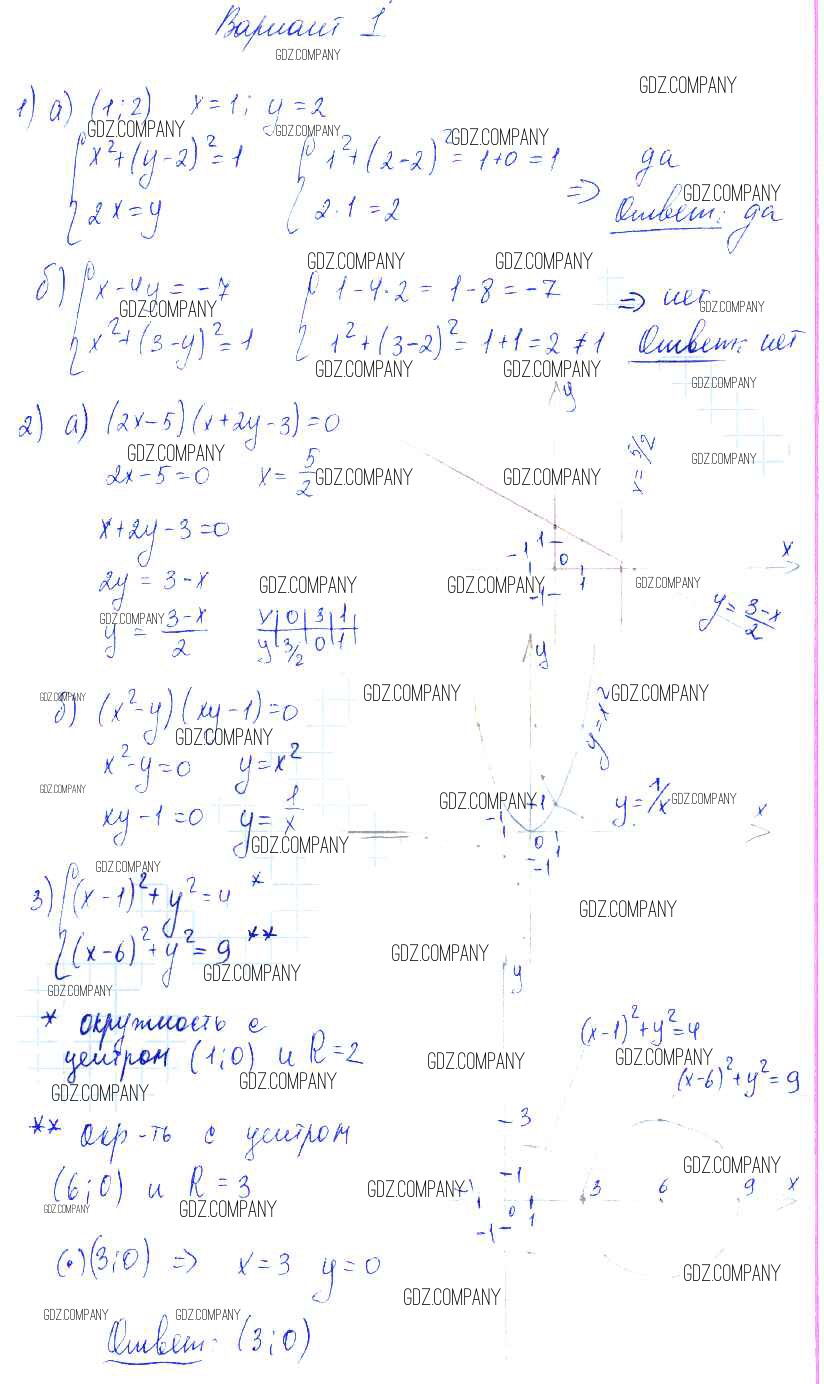 Вариант 1
GDZ.COMPANY
GDZ.COMPANY
1) а) (1; 2) x = 1; y = 2
GDZ.COMPANY GDZ.COMPANY GDZ.COMPANY
x² + (y - 2)² = 1 1² + (2 - 2)² = 1 + 0 = 1 да
2x = y 2 · 1 = 2 => Ответ: да
GDZ.COMPANY
GDZ.COMPANY GDZ.COMPANY
б) x - 4y = -7 1 - 4 · 2 = 1 - 8 = -7 => нет
GDZ.COMPANY GDZ.COMPANY
x² + (3 - y)² = 1 1² + (3 - 2)² = 1 + 1 = 2 ≠ 1 Ответ: нет
GDZ.COMPANY GDZ.COMPANY GDZ.COMPANY
y
2) а) (2x - 5)(x + 2y - 3) = 0
GDZ.COMPANY GDZ.COMPANY
2x - 5 = 0 x = 5/2 x = 5/2
GDZ.COMPANY GDZ.COMPANY
x + 2y - 3 = 0
-1 1 0 x
2y = 3 - x
GDZ.COMPANY GDZ.COMPANY GDZ.COMPANY
-1 1
GDZ.COMPANY
y = 3 - x / 2 y = 3 - x / 2
x 0 3 1
y 3/2 0 1
y
GDZ.COMPANY GDZ.COMPANY GDZ.COMPANY
б) (x² - y)(xy - 1) = 0 y = x²
GDZ.COMPANY
x² - y = 0 y = x²
GDZ.COMPANY GDZ.COMPANY GDZ.COMPANY
xy - 1 = 0 y = 1/x y = 1/x
-1 1 x
GDZ.COMPANY
0 1
-1
GDZ.COMPANY
3) (x - 1)² + y² = 4 *
GDZ.COMPANY
(x - 6)² + y² = 9 **
GDZ.COMPANY GDZ.COMPANY
y
GDZ.COMPANY
* окружность с
(x - 1)² + y² = 4
центром (1; 0) и R = 2
GDZ.COMPANY GDZ.COMPANY
(x - 6)² + y² = 9
GDZ.COMPANY GDZ.COMPANY
** окр-ть с центром
3
GDZ.COMPANY
(6; 0) и R = 3
1
GDZ.COMPANY -1 3 6 9 x
GDZ.COMPANY GDZ.COMPANY
0 1
-1
(·)(3; 0) => x = 3 y = 0
GDZ.COMPANY
GDZ.COMPANY
GDZ.COMPANY GDZ.COMPANY
Ответ: (3; 0)